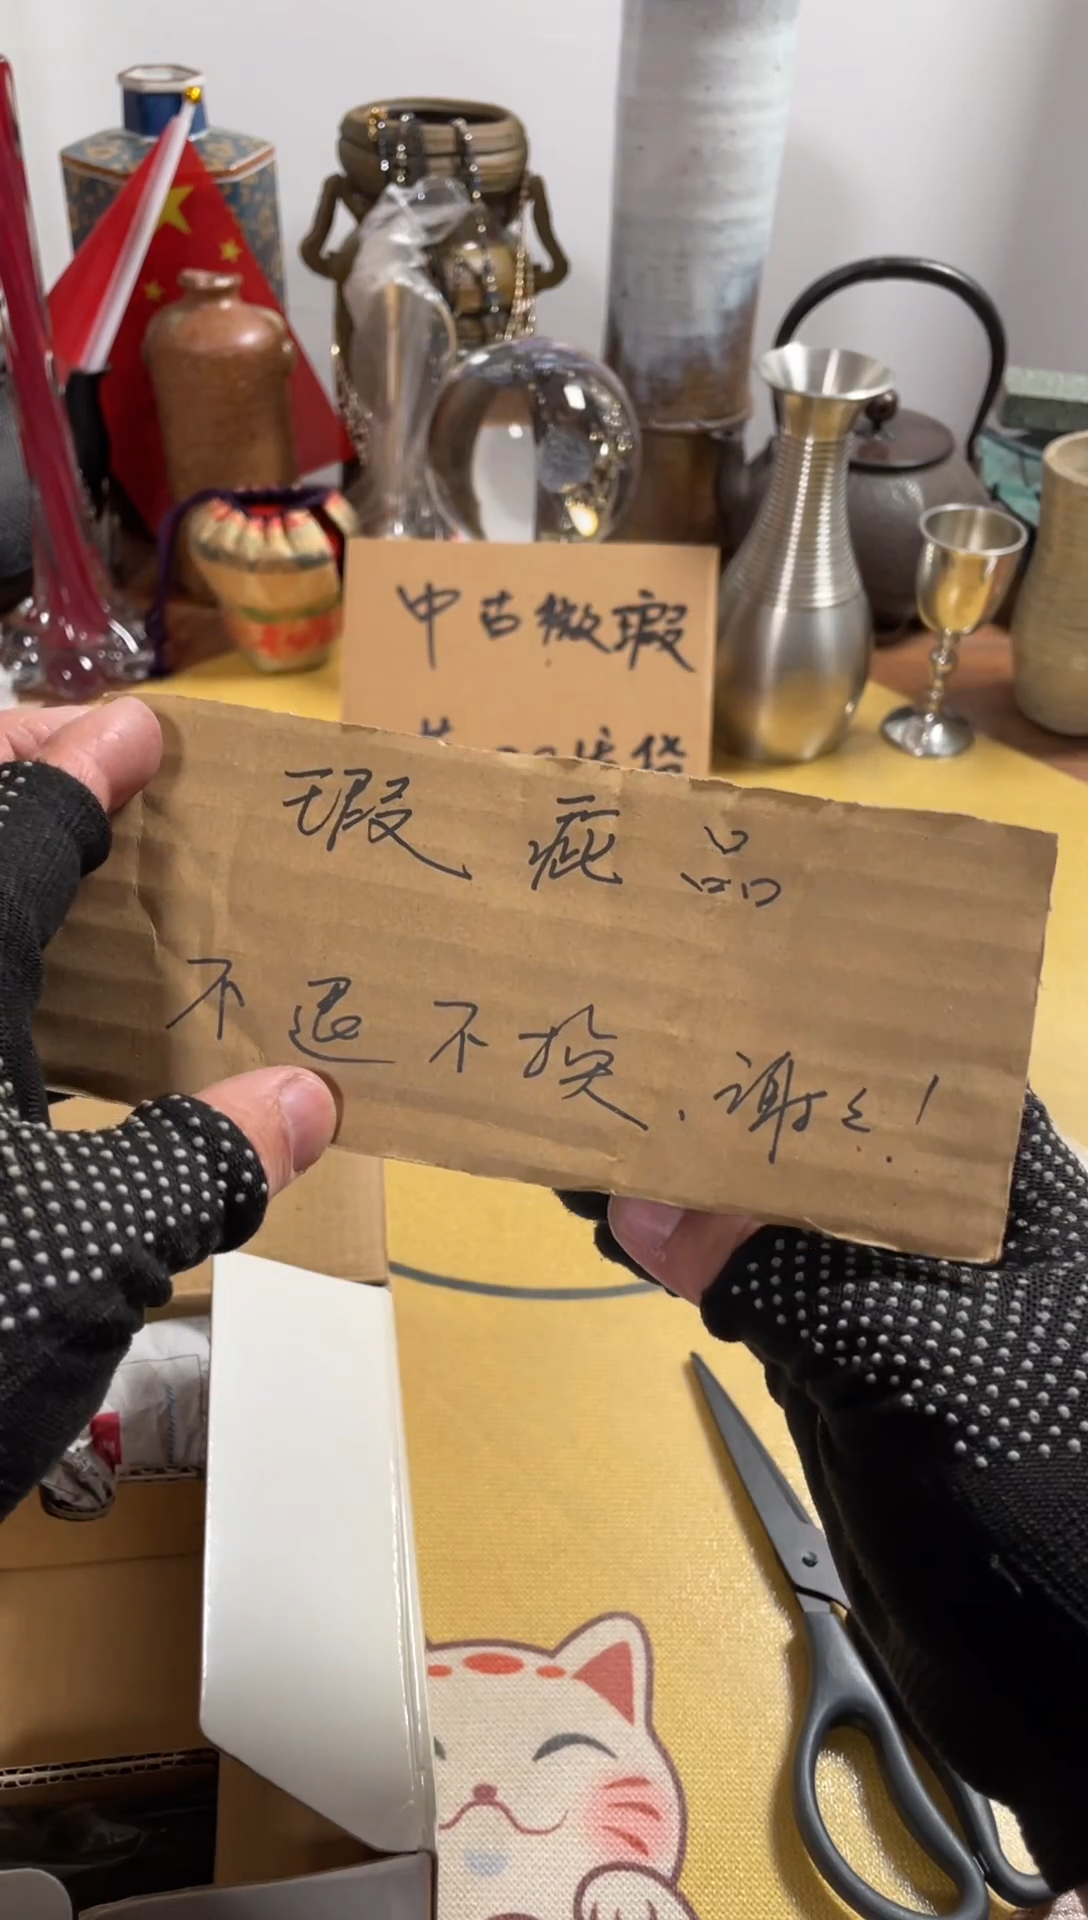 中古微瑕
瑕疵品
不退不换、谢谢！